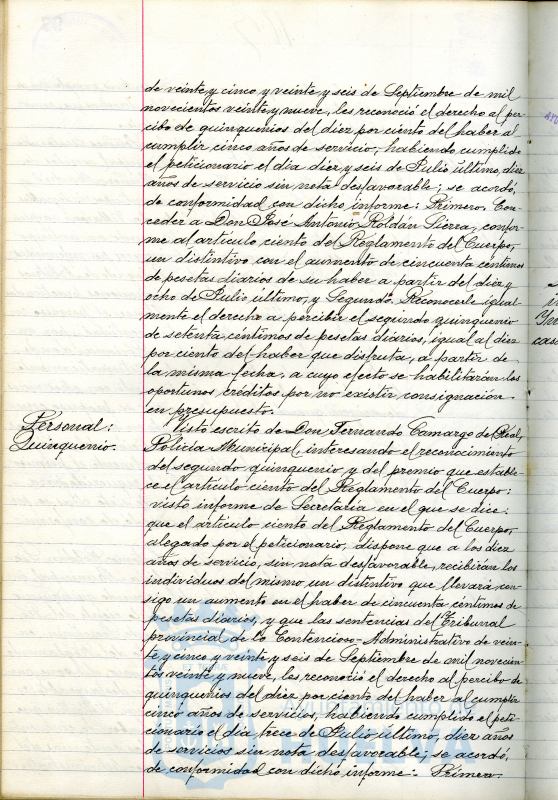 de veinte y cinco y veinte y seis de Septiembre de mil
novecientos veinte y nueve, les reconoció el derecho al per-
cibo de quinquenios del diez por ciento del haber al
cumplir cinco años de servicio, habiendo cumplido
el peticionario el dia diez y seis de Julio último, diez
años de servicio sin nota desfavorable; se acordó,
de conformidad con dicho informe: Primero. Con-
ceder a Don José Antonio Roldán Sierra, confor-
me al artículo ciento del Reglamento del Cuerpo,
un distintivo con el aumento de cincuenta céntimos
de pesetas diarios de su haber a partir del diez y
ocho de Julio último, y Segundo. Reconocerle igual-
mente el derecho a percibir el segundo quinquenio
de setenta céntimos de pesetas diarios, igual al diez
por ciento del haber que disfruta, a partir de
la misma fecha, a cuyo efecto se habilitarán los
oportunos créditos por no existir consignación
en presupuesto.
Personal:
Quinquenio.
Visto escrito de Don Fernando Camargo del Real,
Policia Municipal, interesando el reconocimiento
del segundo quinquenio y del premio que estable-
ce el artículo ciento del Reglamento del Cuerpo;
visto informe de Secretaria en el que se dice:
que el artículo ciento del Reglamento del Cuerpo,
alegado por el peticionario, dispone que a los diez
años de servicio, sin nota desfavorable, recibirán los
individuos del mismo un distintivo que llevará con-
sigo un aumento en el haber de cincuenta céntimos de
pesetas diarios, y que las sentencias del Tribunal
provincial de lo Contencioso-Administrativo de vein-
te y cinco y veinte y seis de Septiembre de mil novecien-
tos veinte y nueve, les reconoció el derecho al percibo de
quinquenios del diez por ciento del haber al cumplir
cinco años de servicios, habiendo cumplido el peti-
cionario el dia trece de Julio último, diez años
de servicios sin nota desfavorable; se acordó,
de conformidad con dicho informe: Primero.